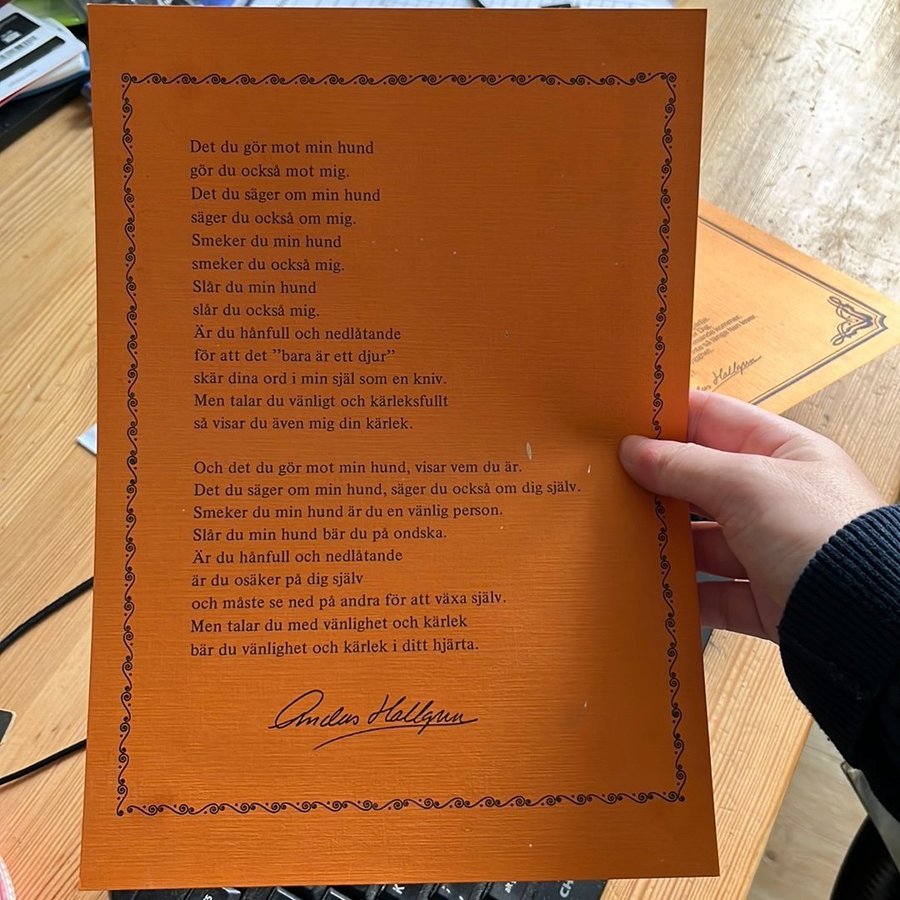 Det du gör mot min hund
gör du också mot mig.
Det du säger om min hund
säger du också om mig.
Smeker du min hund
smeker du också mig.
Slår du min hund
slår du också mig.
Är du hånfull och nedlåtande
för att det ”bara är ett djur”
skär dina ord i min själ som en kniv.
Men talar du vänligt och kärleksfullt
så visar du även mig din kärlek.
Och det du gör mot min hund, visar vem du är.
Det du säger om min hund, säger du också om dig själv.
Smeker du min hund är du en vänlig person.
Slår du min hund bär du på ondska.
Är du hånfull och nedlåtande
är du osäker på dig själv
och måste se ned på andra för att växa själv.
Men talar du med vänlighet och kärlek
bär du vänlighet och kärlek i ditt hjärta.
Anders Hallgren
Hallgren